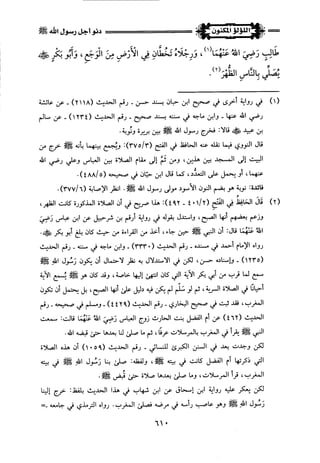 اللؤلؤ المكنون
دنو أجل رسول الله ﷺ
طالب رضي الله عنهما(١)، ورجلاه تخطان في الأرض من الوجع، وأبو بكر ﷺ
يصلي بالناس الظهر(٢).
(١) = في رواية أخرى في صحيح ابن حبان بسند حسن - رقم الحديث (٢١١٨) - عن عائشة
رضي الله عنها - وابن ماجه في سننه بسند صحيح - رقم الحديث (١٢٣٤) - عن سالم
بن عبيد ﷺ قالا: فخرج رسول الله ﷺ بين بريرة ونوبة.
قال النووي فيما نقله عنه الحافظ في الفتح (٣٧٥/٣): ويجمع بينهما بأنه ﷺ خرج من
البيت إلى المسجد بين هذين، ومن ثم إلى مقام الصلاة بين العباس وعلي رضي الله
عنهما، أو يحمل على التعدد، كما قال ابن حبان في صحيحه (٤٨٨/٥).
فائدة: نوبة هو بضم النون الأسود مولى رسول الله ﷺ. انظر الإصابة (٣٧٧/٦).
(٢) قال الحافظ في الفتح (٤٠١/٢ - ٤٩٢): هذا صريح في أن الصلاة المذكورة كانت الظهر،
وزعم بعضهم أنها الصبح، واستدل بقوله في رواية أرقم بن شرحبيل عن ابن عباس رضي
الله عنهما قال: أن النبي ﷺ حين جاء، أخذ من القراءة من حيث كان بلغ أبو بكر.
رواه الإمام أحمد في مسنده - رقم الحديث (٣٣٣٠) - وابن ماجه في سننه - رقم الحديث
(١٢٣٥) - وإسناده حسن، لكن في الاستدلال به نظر لاحتمال أن يكون رسول الله ﷺ
سمع لما قرب من أبي بكر الآية التي كان انتهى إليها خاصة، وقد كان هو ﷺ يسمع الآية
أحيانًا في الصلاة السرية، ثم لو سلم لم يكن فيه دليل على أنها الصبح، بل يحتمل أن تكون
المغرب، فقد ثبت في صحيح البخاري - رقم الحديث (٤٤٢٩) - ومسلم في صحيحه - رقم
الحديث (٤٦٢) عن أم الفضل بنت الحارث زوج العباس رضي الله عنهما قالت: سمعت
النبي ﷺ يقرأ في المغرب بالمرسلات عرفًا، ثم ما صلى لنا بعدها حتى قبضه الله.
لكن وجدت بعد في السنن الكبرى للنسائي - رقم الحديث (١٠٥٩) أن هذه الصلاة
التي ذكرتها أم الفضل كانت في بيته ﷺ، ولفظه: صلى بنا رسول الله ﷺ في بيته
المغرب، فقرأ المرسلات، وما صلى بعدها صلاة حتى قبض ﷺ.
لكن يعكر عليه رواية ابن إسحاق عن ابن شهاب في هذا الحديث بلفظ: خرج إلينا
رسول الله ﷺ وهو عاصب رأسه في مرضه فصلى المغرب. رواه الترمذي في جامعه =
٦١٠